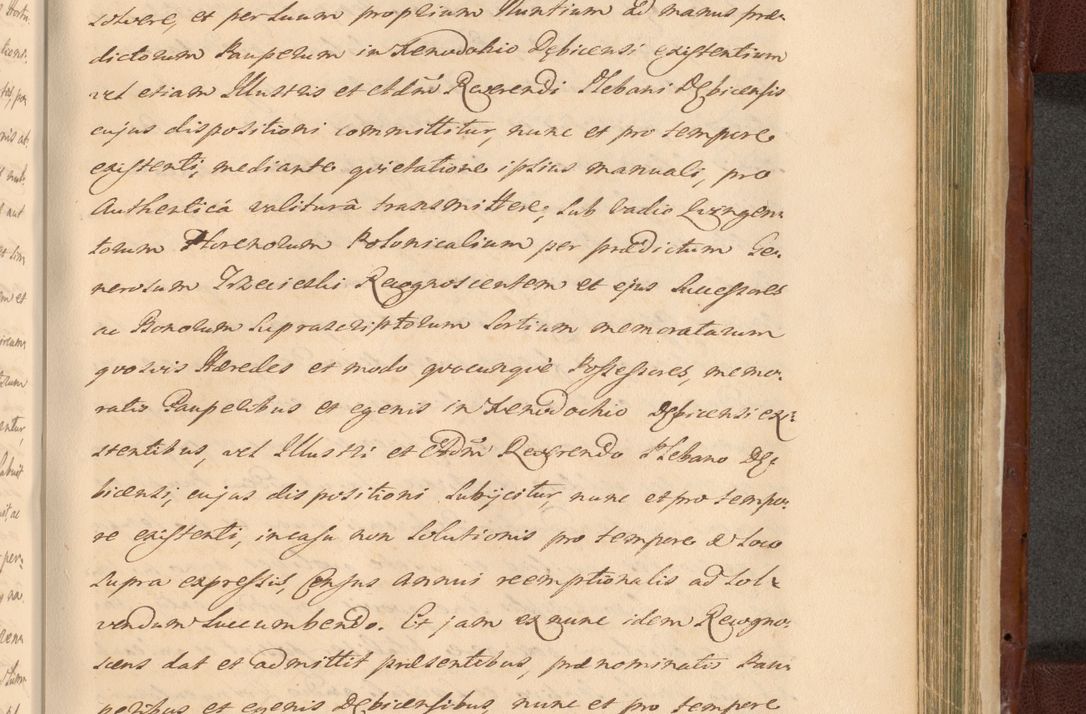 solvere, et per suum proprium Nuntium ad manus præ-
dictorum Pauperum in Xenodohio Dębicensi existentium
vel etiam Illustris et Adm̃ Reverendi Plebani Dębicensis
cujus dispositioni committitur, nunc et pro tempore
existenti, mediante qvietatione ipsius manuali, pro
Authenticâ valiturâ transmittere; sub vadio Qvingen-
torum Florenorum Polonicalium per prædictum Ge-
nerosum Trzecieski Recognoscentem et ejus Successores
ac Bonorum supra scriptorum sortium memoratarum
qvosvis Hæredes et modo qvocunqvè Possessores, memo-
ratis Pauperibus et egenis in Xenodochio Dębicensi exi-
stentibus, vel Illustri et Adm̃ Reverendo Plebano Dę-
bicensi, cujus dispositioni subijcitur, nunc et pro tempo-
re existenti, in casu non solutionis pro tempore et loco
supra expressis, Census annui reemptionalis ad sol-
vendum succumbendo. Et jam ex nunc idem Recogno-
scens dat et admittit præsentibus, prænominatis Pau-
peribus et egenis Dębicensibus, nunc et pro tempore